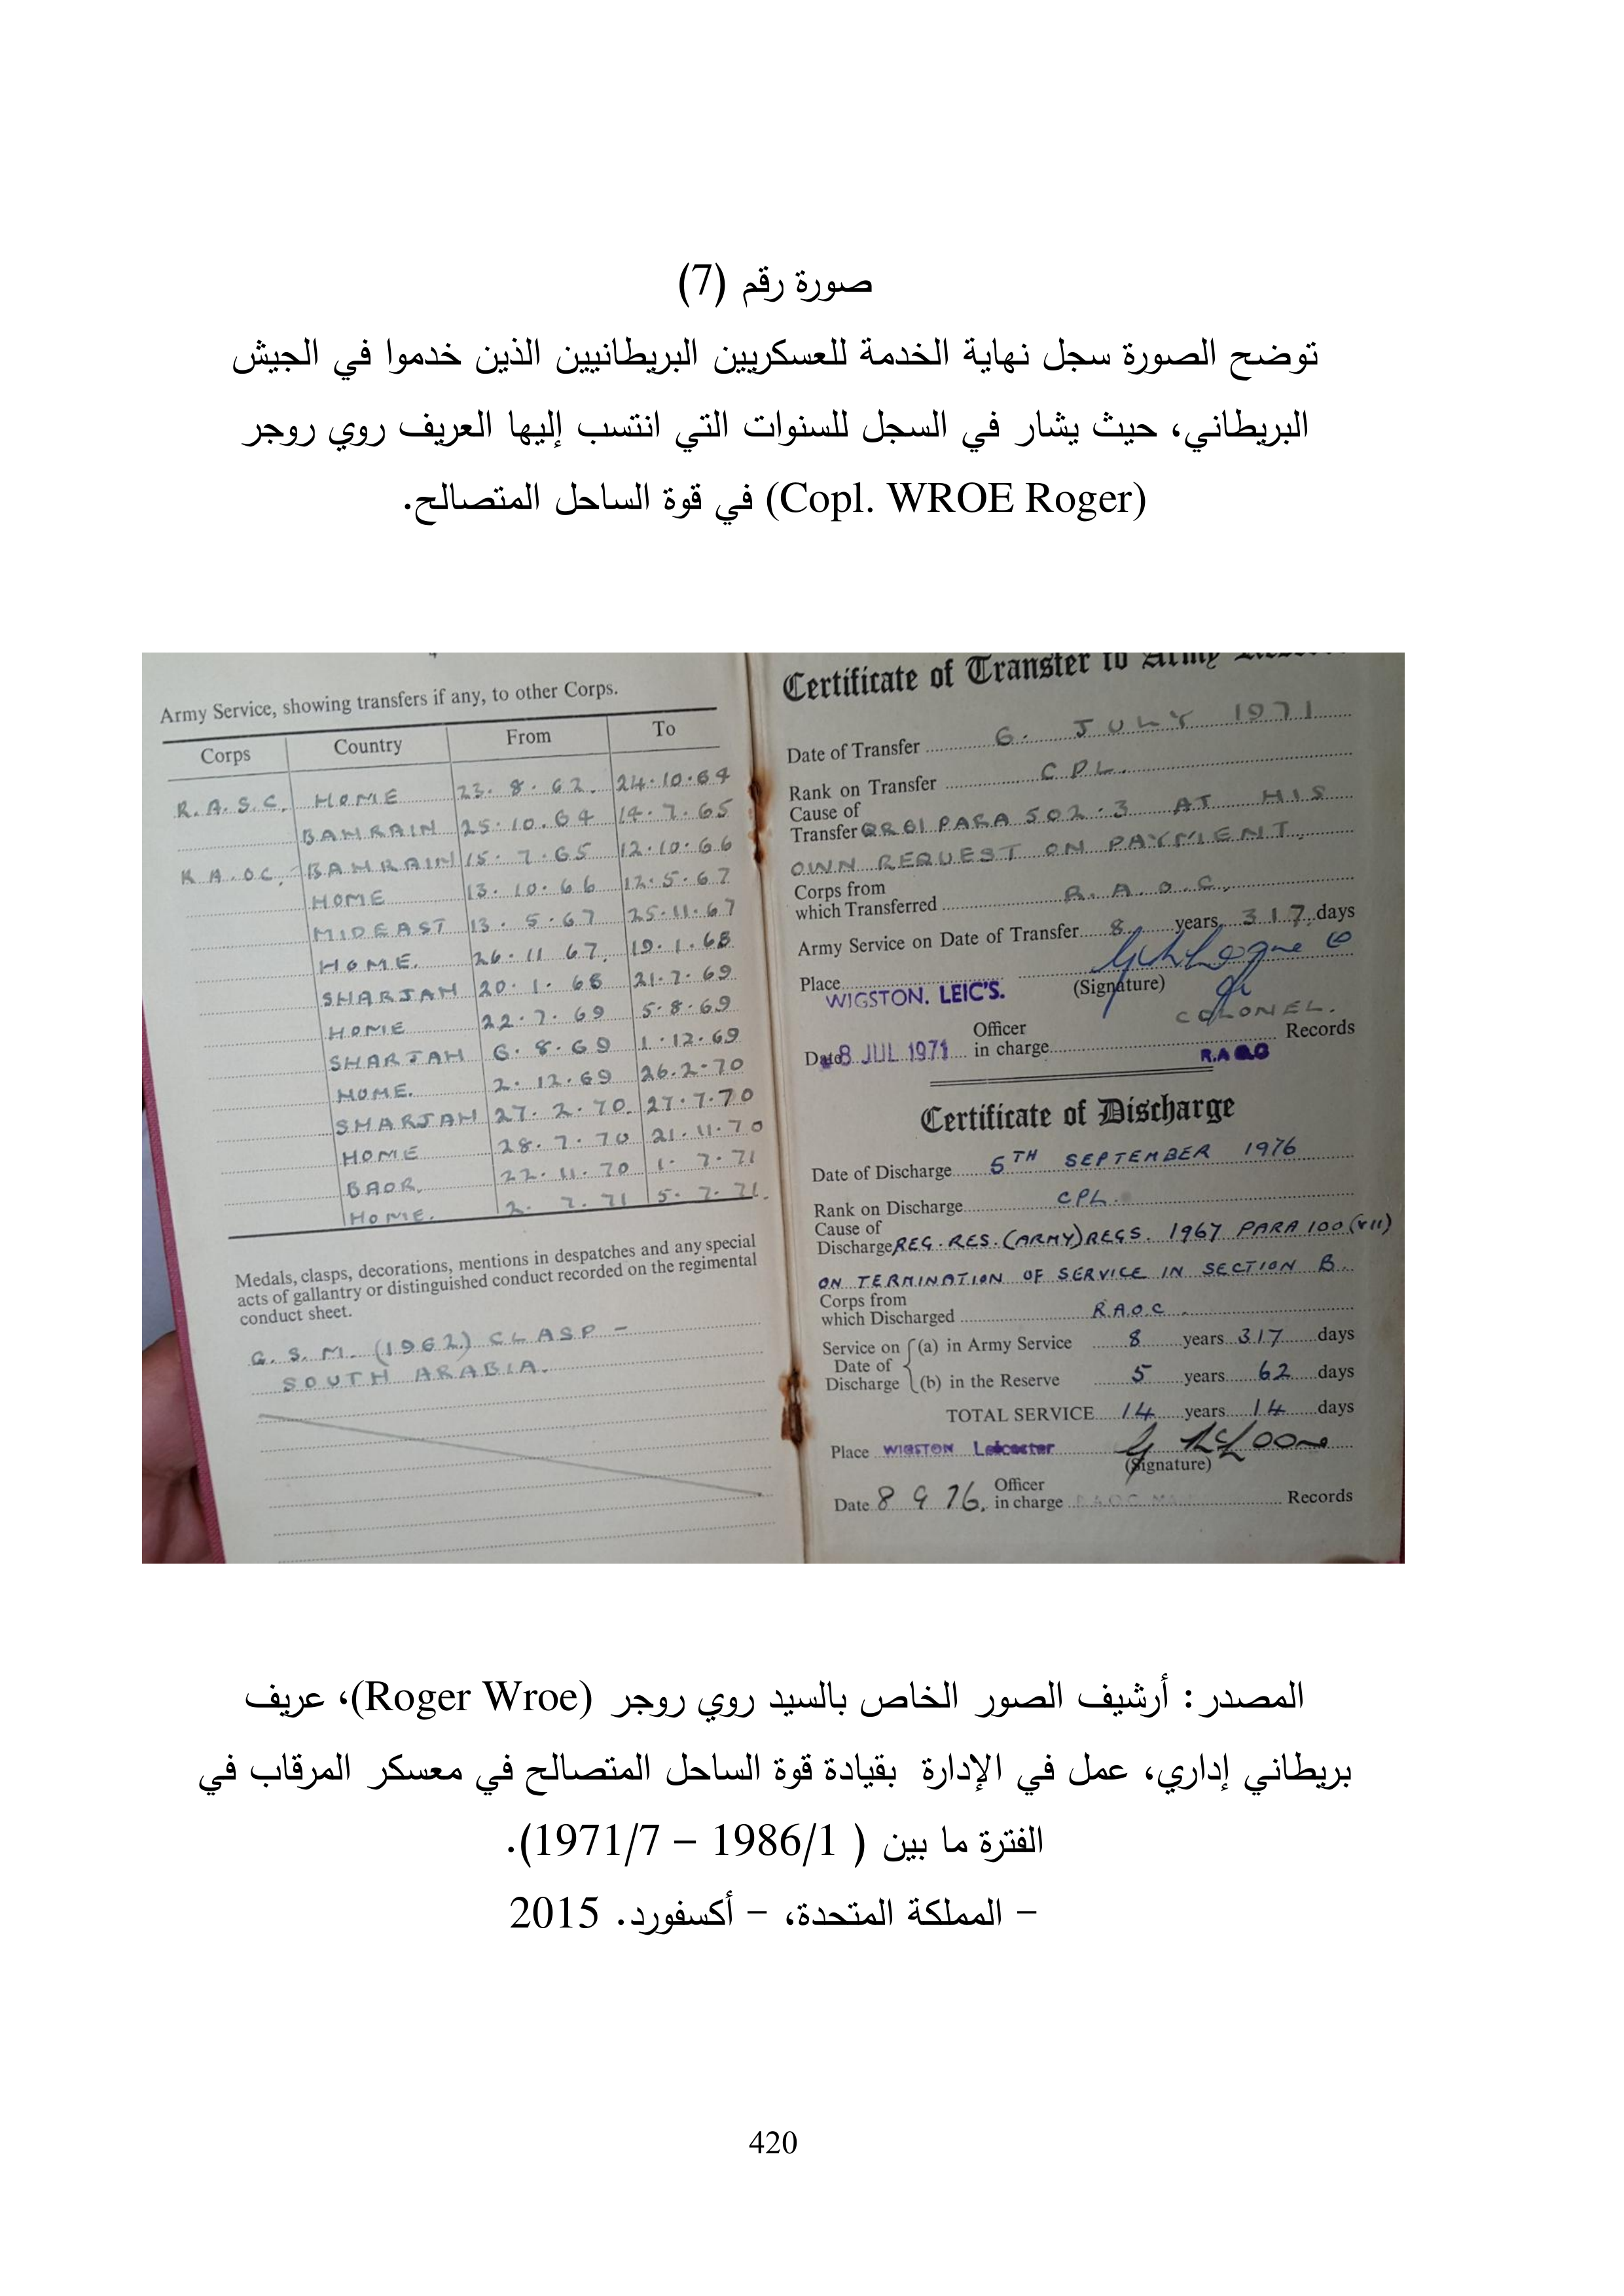 صورة رقم (7)
توضح الصورة سجل نهاية الخدمة للعسكريين البريطانيين الذين خدموا في الجيش
البريطاني، حيث يشار في السجل للسنوات التي انتسب إليها العريف روي روجر
(Copl. WROE Roger) في قوة الساحل المتصالح.
Army Service, showing transfers if any, to other Corps.
Corps Country From To
R.A.S.C. HOME 23.8.62. 24.10.64
BAHRAIN 25.10.64 14.7.65
R.A.O.C. BAHRAIN 15.7.65 12.10.66
HOME 13.10.66 12.5.67
MIDEAST 13.5.67 25.11.67
HOME. 26.11.67. 19.1.68
SHARJAH 20.1.68 21.7.69
HOME 22.7.69 5.8.69
SHARJAH 6.8.69 1.12.69
HOME. 2.12.69 26.2.70
SHARJAH 27.2.70. 27.7.70
HOME 28.7.70 21.11.70
BAOR. 22.11.70 1.7.71
HOME. 2.7.71 5.7.71.
Medals, clasps, decorations, mentions in despatches and any special
acts of gallantry or distinguished conduct recorded on the regimental
conduct sheet.
G.S.M. (1962) CLASP -
SOUTH ARABIA.
Certificate of Transfer to Army
Date of Transfer 6. JULY 1971
Rank on Transfer CPL.
Cause of
Transfer QR61 PARA 502.3 AT HIS
OWN REQUEST ON PAYMENT.
Corps from
which Transferred R.A.O.C.
Army Service on Date of Transfer 8 years 317 days
Place
WIGSTON. LEIC'S.
(Signature)
COLONEL.
Date 8 JUL 1971 Officer in charge Records
R.A.O.C
Certificate of Discharge
Date of Discharge 5TH SEPTEMBER 1976
Rank on Discharge CPL.
Cause of
Discharge REG. RES. (ARMY) REGS. 1967 PARA 100 (VII)
ON TERMINATION OF SERVICE IN SECTION B.
Corps from
which Discharged R.A.O.C.
Service on Date of Discharge (a) in Army Service 8 years 317 days
(b) in the Reserve 5 years 62 days
TOTAL SERVICE 14 years 14 days
Place WIGSTON Leicester
(Signature)
Date 8 9 76. Officer in charge Records
المصدر: أرشيف الصور الخاص بالسيد روي روجر (Roger Wroe)، عريف
بريطاني إداري، عمل في الإدارة بقيادة قوة الساحل المتصالح في معسكر المرقاب في
الفترة ما بين ( 1986/1 – 1971/7).
– المملكة المتحدة، – أكسفورد. 2015
420